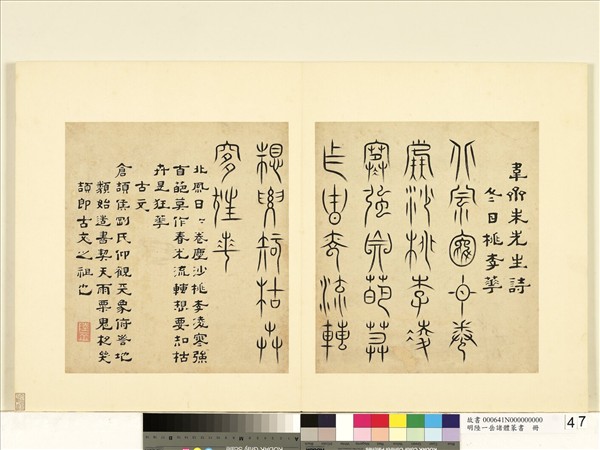 韋齋朱先生詩
冬日桃李華
北風日日卷
塵沙桃李凌
寒強自葩莫
作春光流轉
想要知枯卉
是狂華
北風日〻卷塵沙桃李凌寒強
自葩莫作春光流轉想要知枯
卉是狂華
古文
倉頡侯剛氏仰觀天象俯察地
類始造書契天雨粟鬼夜哭
頡即古文之祖也
故書 000641N000000000
明陸一岳諸體篆書 冊
47